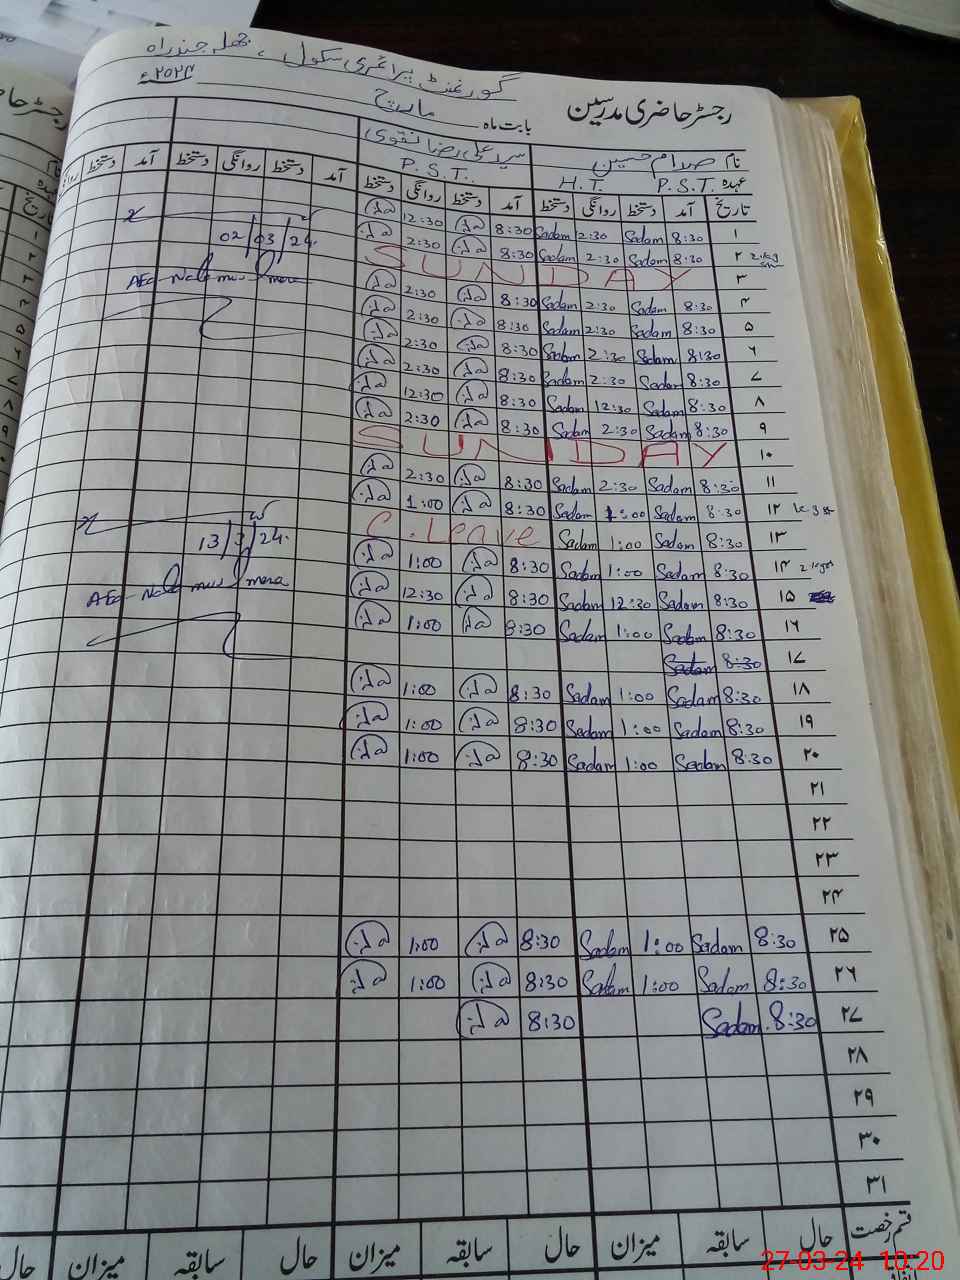 گورنمنٹ پرائمری سکول ، جھلہ جندراہ
رجسٹر حاضری مدرسین بابت ماہ مارچ ۲۰۲۴ء
نام صدام حسین سید علی رضا نقوی
عہدہ P.S.T. H.T. P.S.T.
تاریخ آمد دستخط روانگی دستخط آمد دستخط روانگی دستخط آمد دستخط روانگی دستخط آمد دستخط
۱ 8:30 Sadam 12:30 Sadam 8:30 12:30
02/03/24
۲ 8:30 Sadam 2:30 Sadam 8:30 2:30
۳ SUNDAY
۴ 8:30 Sadam 2:30 Sadam 8:30 2:30
۵ 8:30 Sadam 2:30 Sadam 8:30 2:30
۶ 8:30 Sadam 2:30 Sadam 8:30 2:30
۷ 8:30 Sadam 2:30 Sadam 8:30 2:30
۸ 8:30 Sadam 12:30 Sadam 8:30 12:30
۹ 8:30 Sadam 2:30 Sadam 8:30 2:30
۱۰ SUNDAY
۱۱ 8:30 Sadam 2:30 Sadam 8:30 2:30
۱۲ 8:30 Sadam 1:00 Sadam 8:30 1:00
۱۳ 8:30 Sadam 1:00 Sadam C. Leave
13/3/24
۱۴ 8:30 Sadam 1:00 Sadam 8:30 1:00
۱۵ 8:30 Sadam 12:30 Sadam 8:30 12:30
۱۶ 8:30 Sadam 1:00 Sadam 8:30 1:00
۱۷ 8:30 Sadam
۱۸ 8:30 Sadam 1:00 Sadam 8:30 1:00
۱۹ 8:30 Sadam 1:00 Sadam 8:30 1:00
۲۰ 8:30 Sadam 1:00 Sadam 8:30 1:00
۲۱
۲۲
۲۳
۲۴
۲۵ 8:30 Sadam 1:00 Sadam 8:30 1:00
۲۶ 8:30 Sadam 1:00 Sadam 8:30 1:00
۲۷ 8:30 Sadam 8:30
۲۸
۲۹
۳۰
۳۱
قسم رخصت حال سابقہ میزان حال سابقہ میزان حال سابقہ میزان حال
27-03-24 10:20